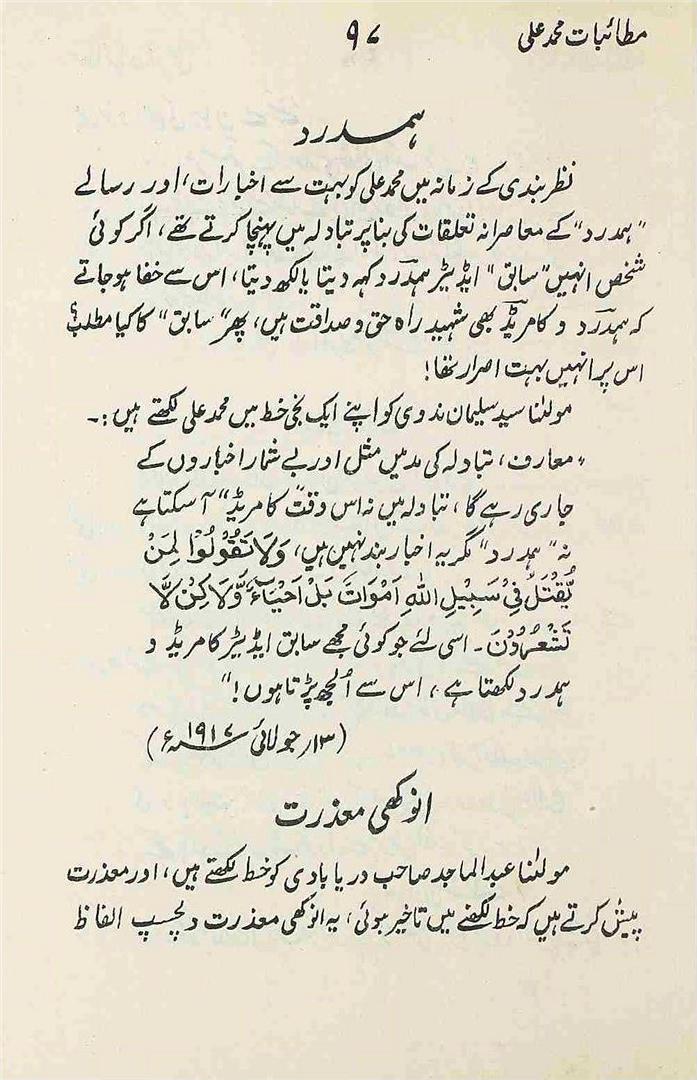 مطائبات محمد علی
۹۷
ہمدرد
نظر بندی کے زمانہ میں محمد علی کو بہت سے اخبارات، اور رسالے
"ہمدرد" کے معاصرانہ تعلقات کی بنا پر تبادلہ میں پہنچا کرتے تھے، اگر کوئی
شخص انہیں "سابق" ایڈیٹر ہمدرد کہہ دیتا یا لکھ دیتا، اس سے خفا ہو جاتے
کہ ہمدرد و کامریڈ بھی شہید راہ حق و صداقت ہیں، پھر "سابق" کا کیا مطلب؟
اس پر انہیں بہت اصرار تھا!
مولٰنا سید سلیمان ندوی کو اپنے ایک نجی خط میں محمد علی لکھتے ہیں:۔
"معارف، تبادلہ کی مد میں مثل اور بے شمار اخباروں کے
جاری رہے گا، تبادلہ میں نہ اس وقت "کامریڈ" آ سکتا ہے
نہ "ہمدرد" مگر یہ اخبار بند نہیں ہیں، وَلَا تَقُوْلُوْا لِمَنْ
یُّقْتَلُ فِیْ سَبِیْلِ اللّٰہِ اَمْوَاتٌ بَلْ اَحْیَاءٌ وَّلَاکِنْ لَّا
تَشْعُرُوْنَ۔ اسی لئے جو کوئی مجھے سابق ایڈیٹر کامریڈ و
ہمدرد لکھتا ہے، اس سے اُلجھ پڑتا ہوں!"
(۱۳؍ جولائی ۱۹۱۷ء)
انوکھی معذرت
مولٰنا عبد الماجد صاحب دریابادی کو خط لکھتے ہیں، اور معذرت
پیش کرتے ہیں کہ خط لکھنے میں تاخیر ہوئی، یہ انوکھی معذرت دلچسپ الفاظ